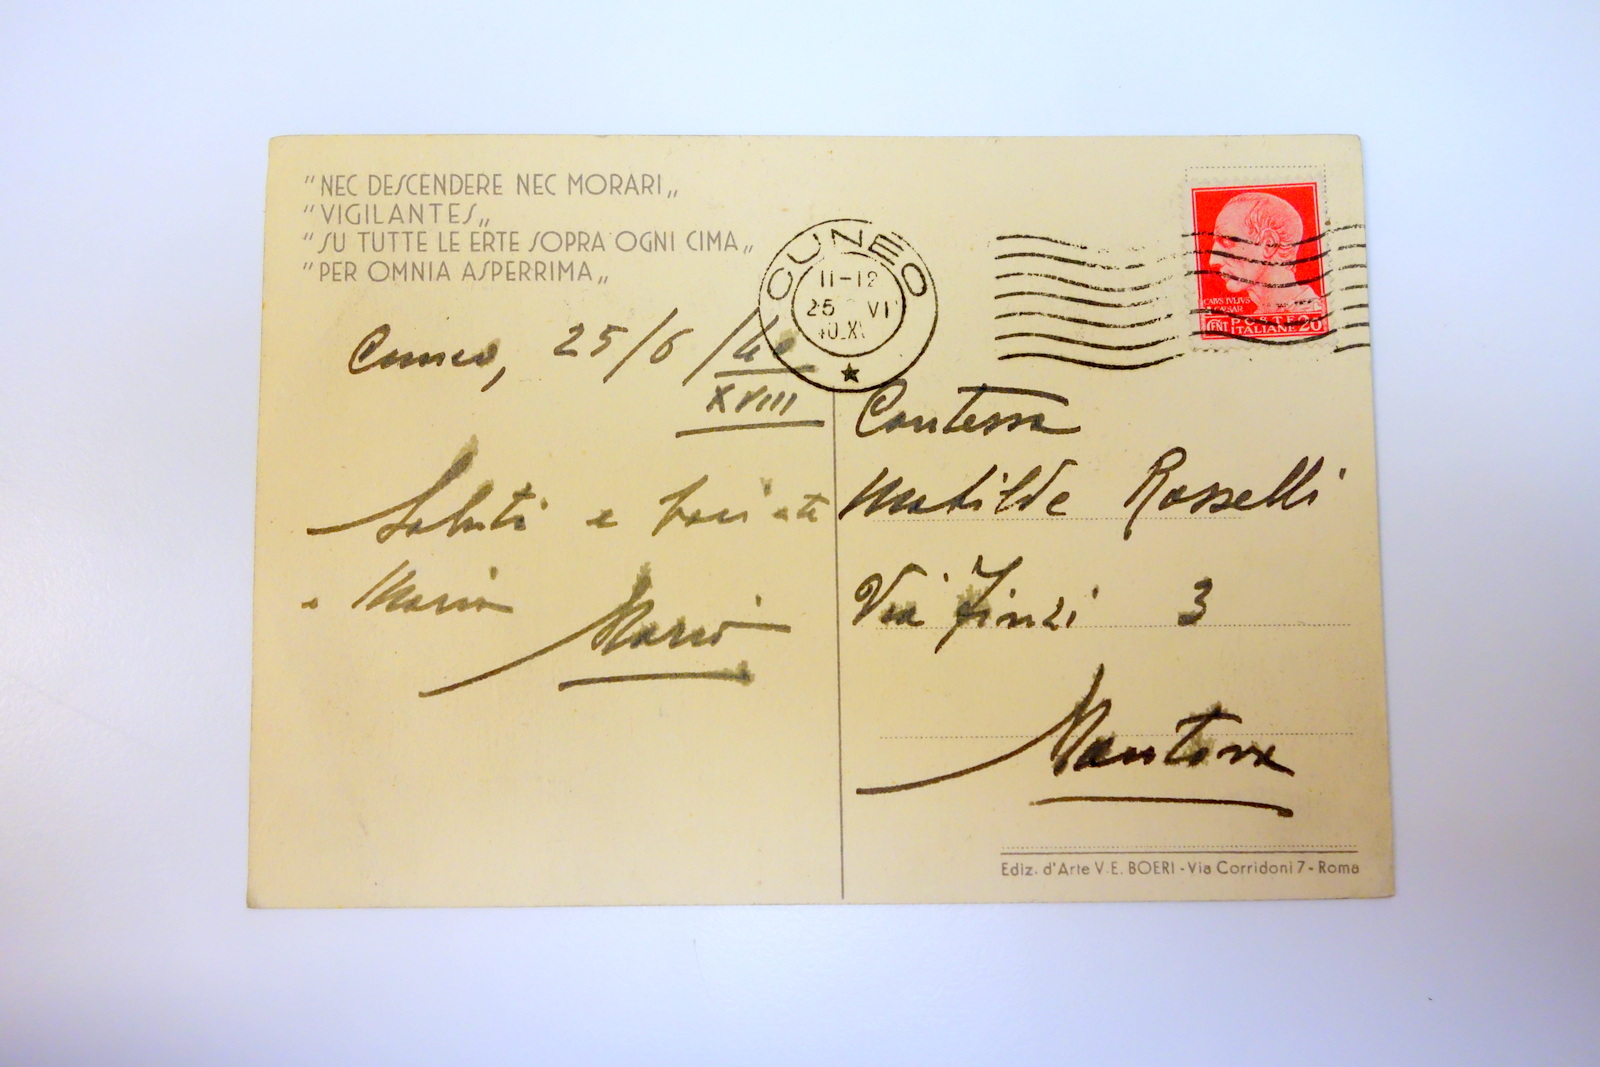 "NEC DESCENDERE NEC MORARI„
"VIGILANTES„
"SU TUTTE LE ERTE SOPRA OGNI CIMA„
"PER OMNIA ASPERRIMA„
CUNEO
11-12
25 VI
40.XV
CAIVS IVLIVS
CAESAR
CENT POSTE 20
ITALIANE
Cuneo, 25/6/40
XVIII
Saluti e baci a te
e Maria
Mario
Contessa
Matilde Rosselli
Via Finzi 3
Mantova
Ediz. d'Arte V. E. BOERI - Via Corridoni 7 - Roma